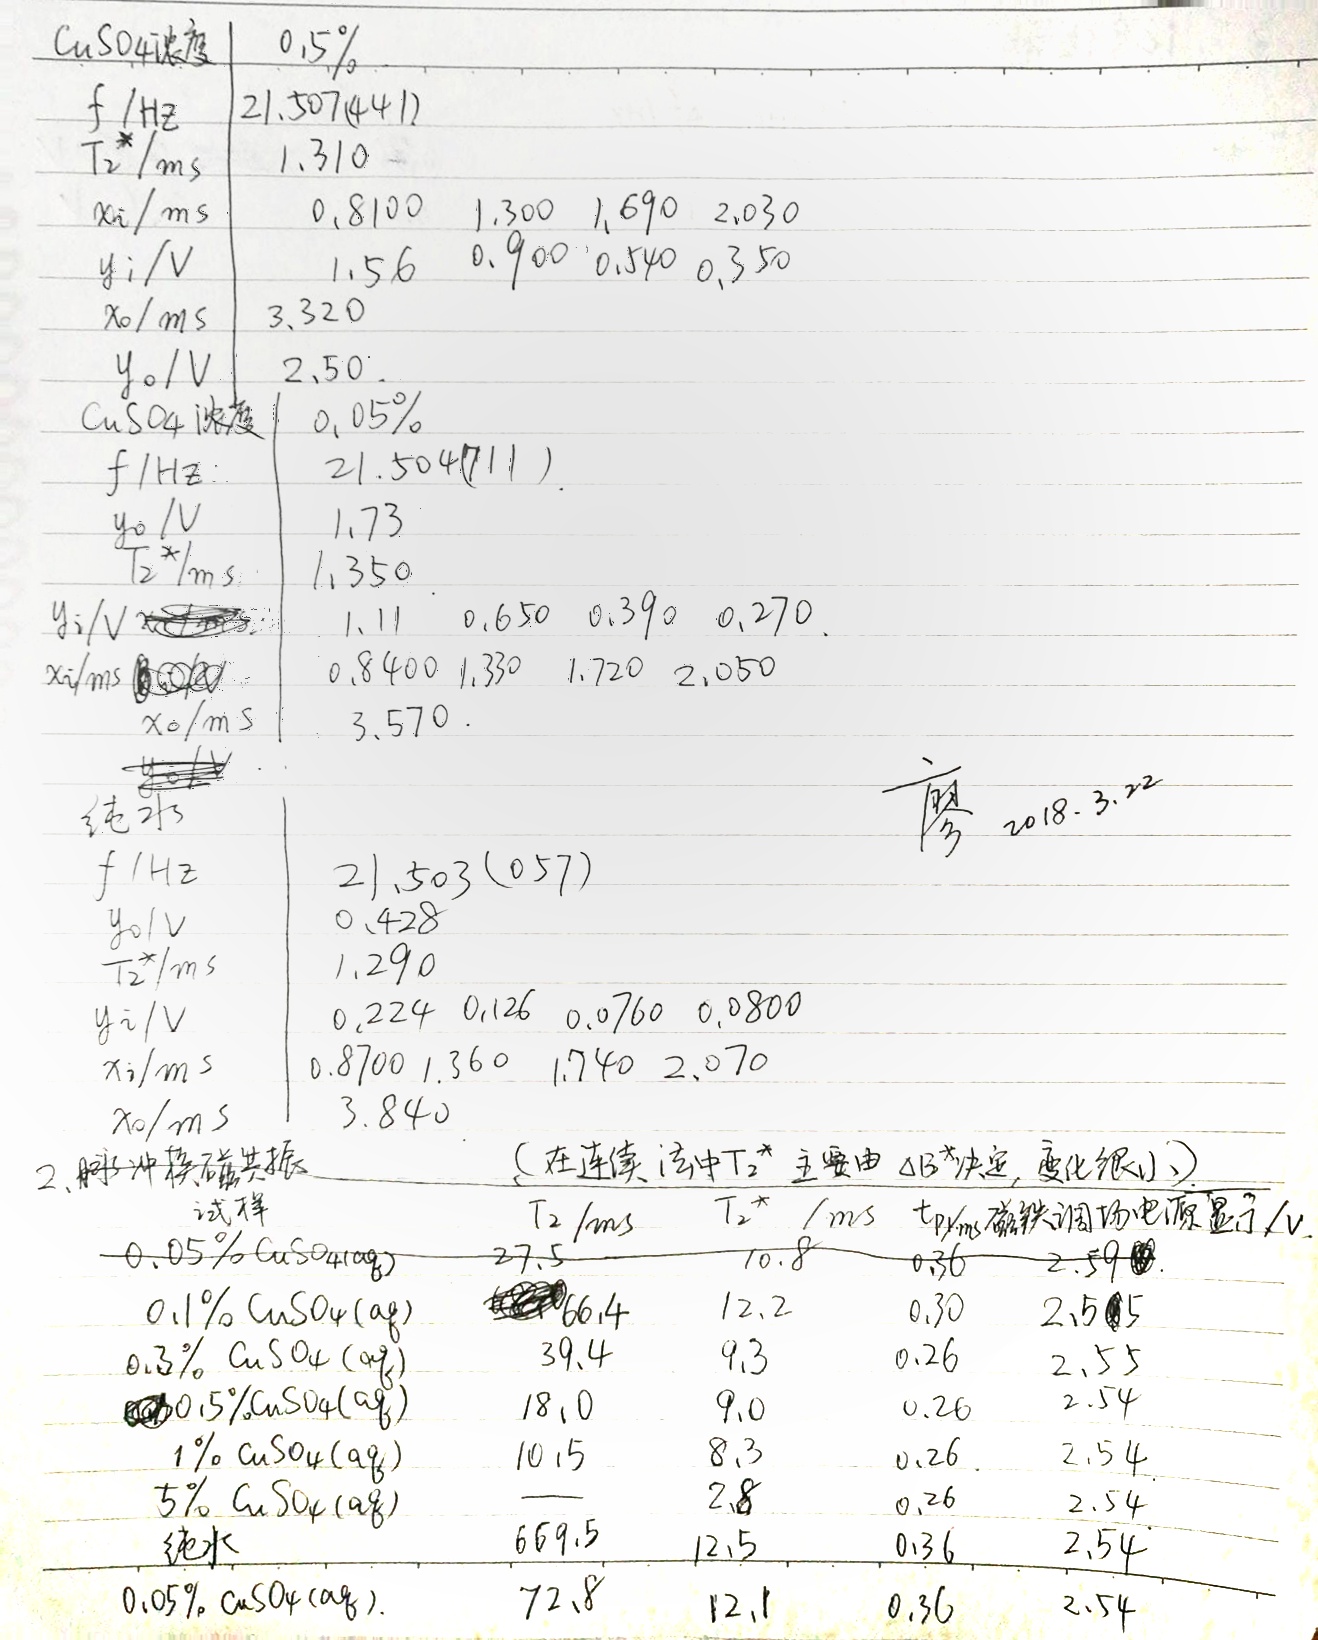 CuSO4浓度 0.5%
f/Hz 21.507(441)
T₂*/ms 1.310
xi/ms 0.8100 1.300 1.690 2.030
yi/V 1.56 0.900 0.540 0.350
x₀/ms 3.320
y₀/V 2.50
CuSO4浓度 0.05%
f/Hz 21.504(711)
y₀/V 1.73
T₂*/ms 1.350
yi/V 1.11 0.650 0.390 0.270
xi/ms 0.8400 1.330 1.720 2.050
x₀/ms 3.570
廖 2018.3.22
纯水
f/Hz 21.503(057)
y₀/V 0.428
T₂*/ms 1.290
yi/V 0.224 0.126 0.0760 0.0800
xi/ms 0.8700 1.360 1.740 2.070
x₀/ms 3.840
2、脉冲核磁共振 (在连续法中T₂*主要由ΔB*决定,变化很小)
试样 T₂/ms T₂*/ms tp/ms 磁铁调场电源显示/V
0.05% CuSO4(aq) 27.5 10.8 0.36 2.59
0.1% CuSO4(aq) 66.4 12.2 0.30 2.55
0.3% CuSO4(aq) 39.4 9.3 0.26 2.55
0.5% CuSO4(aq) 18.0 9.0 0.26 2.54
1% CuSO4(aq) 10.5 8.3 0.26 2.54
5% CuSO4(aq) — 2.8 0.26 2.54
纯水 669.5 12.5 0.36 2.54
0.05% CuSO4(aq). 72.8 12.1 0.36 2.54